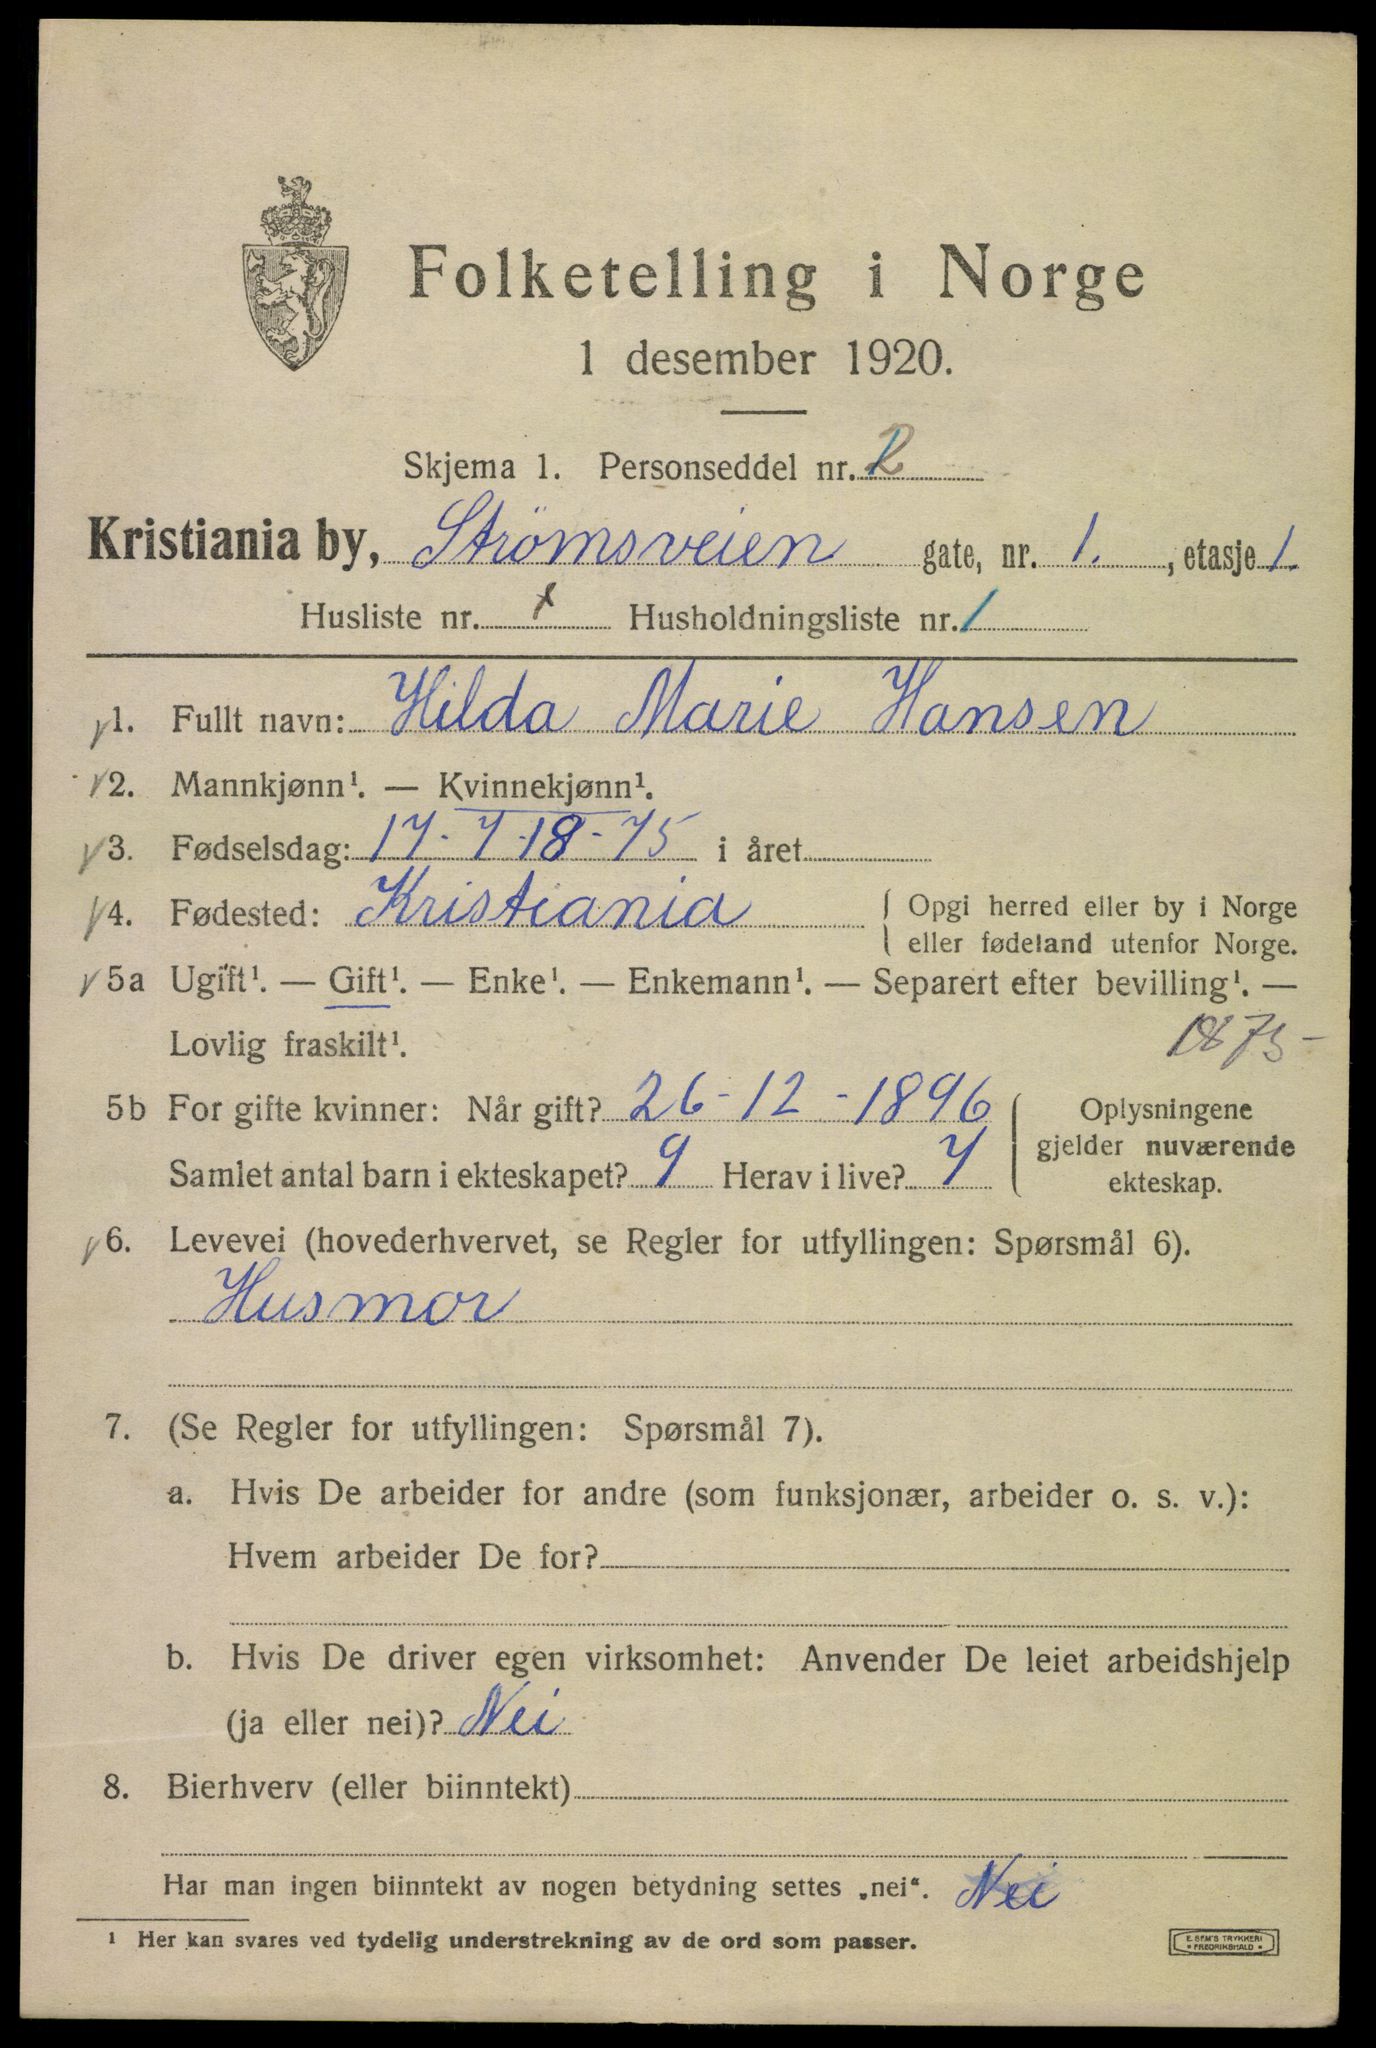 Folketelling i Norge
1 desember 1920.
Skjema 1. Personseddel nr. 2
Kristiania by, Strömsveien gate, nr. 1. , etasje 1.
Husliste nr. Husholdningsliste nr. 1
1. Fullt navn: Hilda Marie Hansen
2. Mannkjønn¹. — Kvinnekjønn¹.
3. Fødselsdag: 17-7-18-75 i året
4. Fødested: Kristiania { Opgi herred eller by i Norge
eller fødeland utenfor Norge.
5a Ugift¹. — Gift¹. — Enke¹. — Enkemann¹. — Separert efter bevilling¹. —
Lovlig fraskilt¹. 1875-
5b For gifte kvinner: Når gift? 26-12-1896 { Oplysningene
gjelder nuværende
Samlet antal barn i ekteskapet? 9 Herav i live? 7 ekteskap.
6. Levevei (hovederhvervet, se Regler for utfyllingen: Spørsmål 6).
Husmor
7. (Se Regler for utfyllingen: Spørsmål 7).
a. Hvis De arbeider for andre (som funksjonær, arbeider o. s. v.):
Hvem arbeider De for?
b. Hvis De driver egen virksomhet: Anvender De leiet arbeidshjelp
(ja eller nei)? Nei
8. Bierhverv (eller biinntekt)
Har man ingen biinntekt av nogen betydning settes „nei“. Nei
¹ Her kan svares ved tydelig understrekning av de ord som passer.
E. SEM'S TRYKKERI
* FREDRIKSHALD *